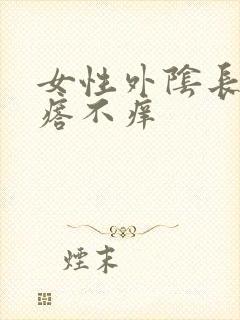 女性外陰長
痞不痒
煙末